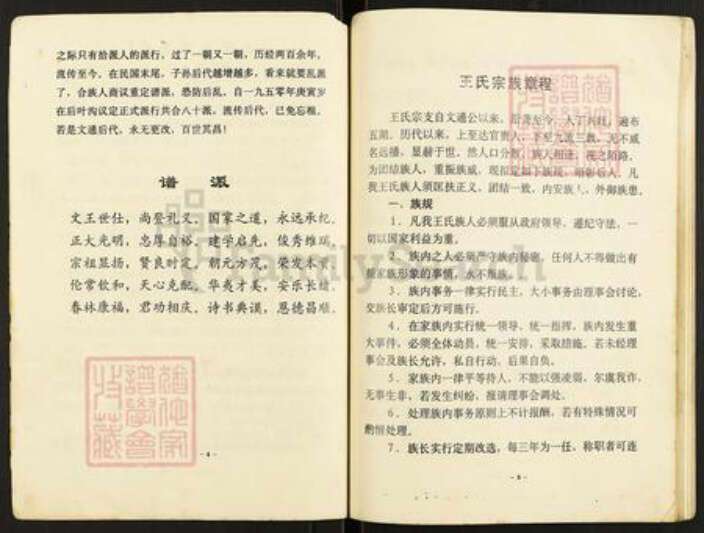 之际只有拾派人的派行，过了一朝又一朝，历经两百余年，
流传至今。在民国末尾，子孙后代越增越多，看来就要乱派
了，合族人商议重定谱派，恐防后乱，自一九五零年庚寅岁
在后叶沟议定正式派行共合八十派，流传后代，已免忘根。
若是文通后代，永无更改，百世其昌！
谱 派
文王世仕，尚登礼义，国家之道，永远承纪。
正大光明，忠厚自裕，建学启先，俊秀维
宗祖显扬，贤良时定，朝元方茂，荣发本
伦常钦和，天心克配，华夷才美，安乐长
春林康福，君功相庆，诗书典谟，恩德昌顺。
- 4 -
王氏宗族章程
王氏宗支自文通公以来，沿袭至今，人丁兴旺，遍布
五湖。历代以来，上至达官贵人，下至九流三教，无不威
名远播，显赫于世。然人口分散，族人相逢，视之陌路。
为团结族人，重振族威，现拟定如下族规，昭彰后人，凡
我王氏族人须匡扶正义，团结一致，内安族人，外御族患。
一、族规
1、凡我王氏族人必须服从政府领导，遵纪守法，一
切以国家利益为重。
2、族内之人必须严守族内秘密，任何人不得做出有
损家族形象的事情，从不叛族。
3、族内事务一律实行民主，大小事务由理事会讨论，
交族长审定后方可施行。
4、在家族内实行统一领导，统一指挥，族内发生重
大事件，必须全体动员，统一安排，采取措施。若未经理
事会及族长允许，私自行动，后果自负。
5、家族内一律平等待人，不能以强凌弱，尔虞我诈，
无事生非，若发生纠纷，报请理事会调处。
6、处理族内事务原则上不计报酬，若有特殊情况可
酌情处理。
7、族长实行定期改选，每三年为一任，称职者可连
- 5 -
FamilySearch